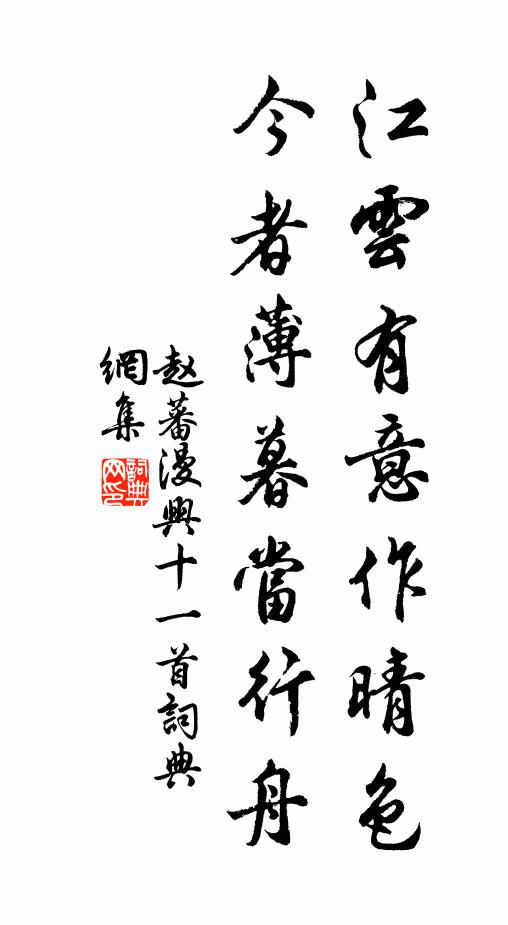 江雲有意作晴色
今者薄暮當行舟
赵蕃漫興十一首詞典
網集
詞典
网印